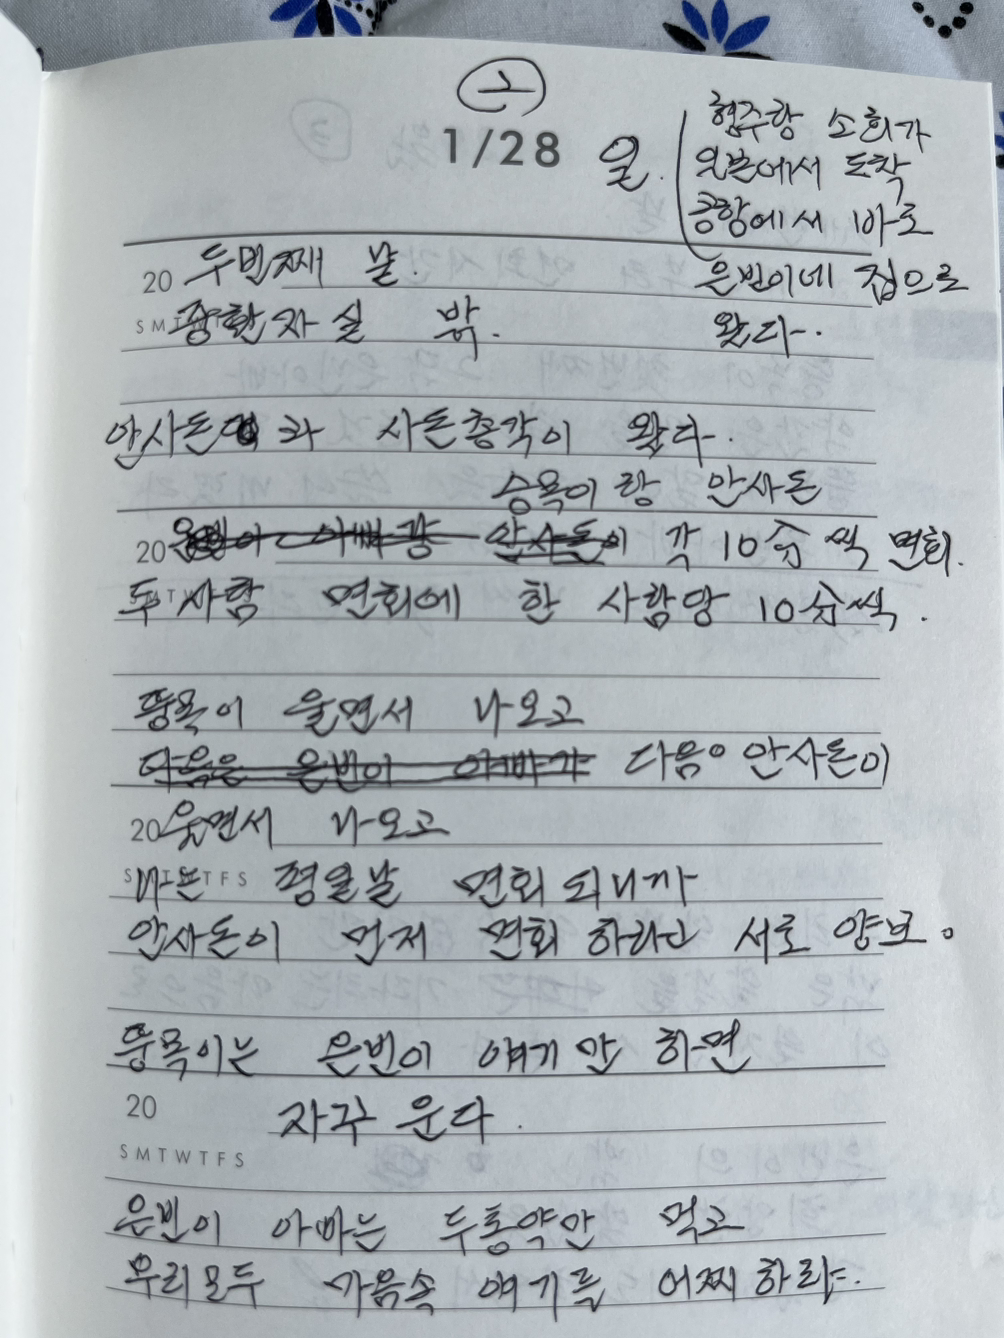 2
1/28 일.
현주랑 소희가
일본에서 도착
공항에서 바로
은빈이네 집으로
왔다.
20 두번째 날.
SMTWTFS 중환자실 밖.
안사돈과 사돈총각이 왔다.
승욱이랑 안사돈
20 은빈이 아빠랑 안사돈이 각 10分씩 면회.
두 사람 면회에 한 사람당 10分씩.
승욱이 울면서 나오고
다음은 은빈이 아빠가 다음은 안사돈이
20 울면서 나오고
SMTWTFS 나는 평일날 면회 되니까
안사돈이 먼저 면회 하라고 서로 양보.
승욱이는 은빈이 얘기만 하면
20 자꾸 운다.
SMTWTFS
은빈이 아빠는 두통약만 먹고
우리모두 가음속 얘기를 어찌하랴.